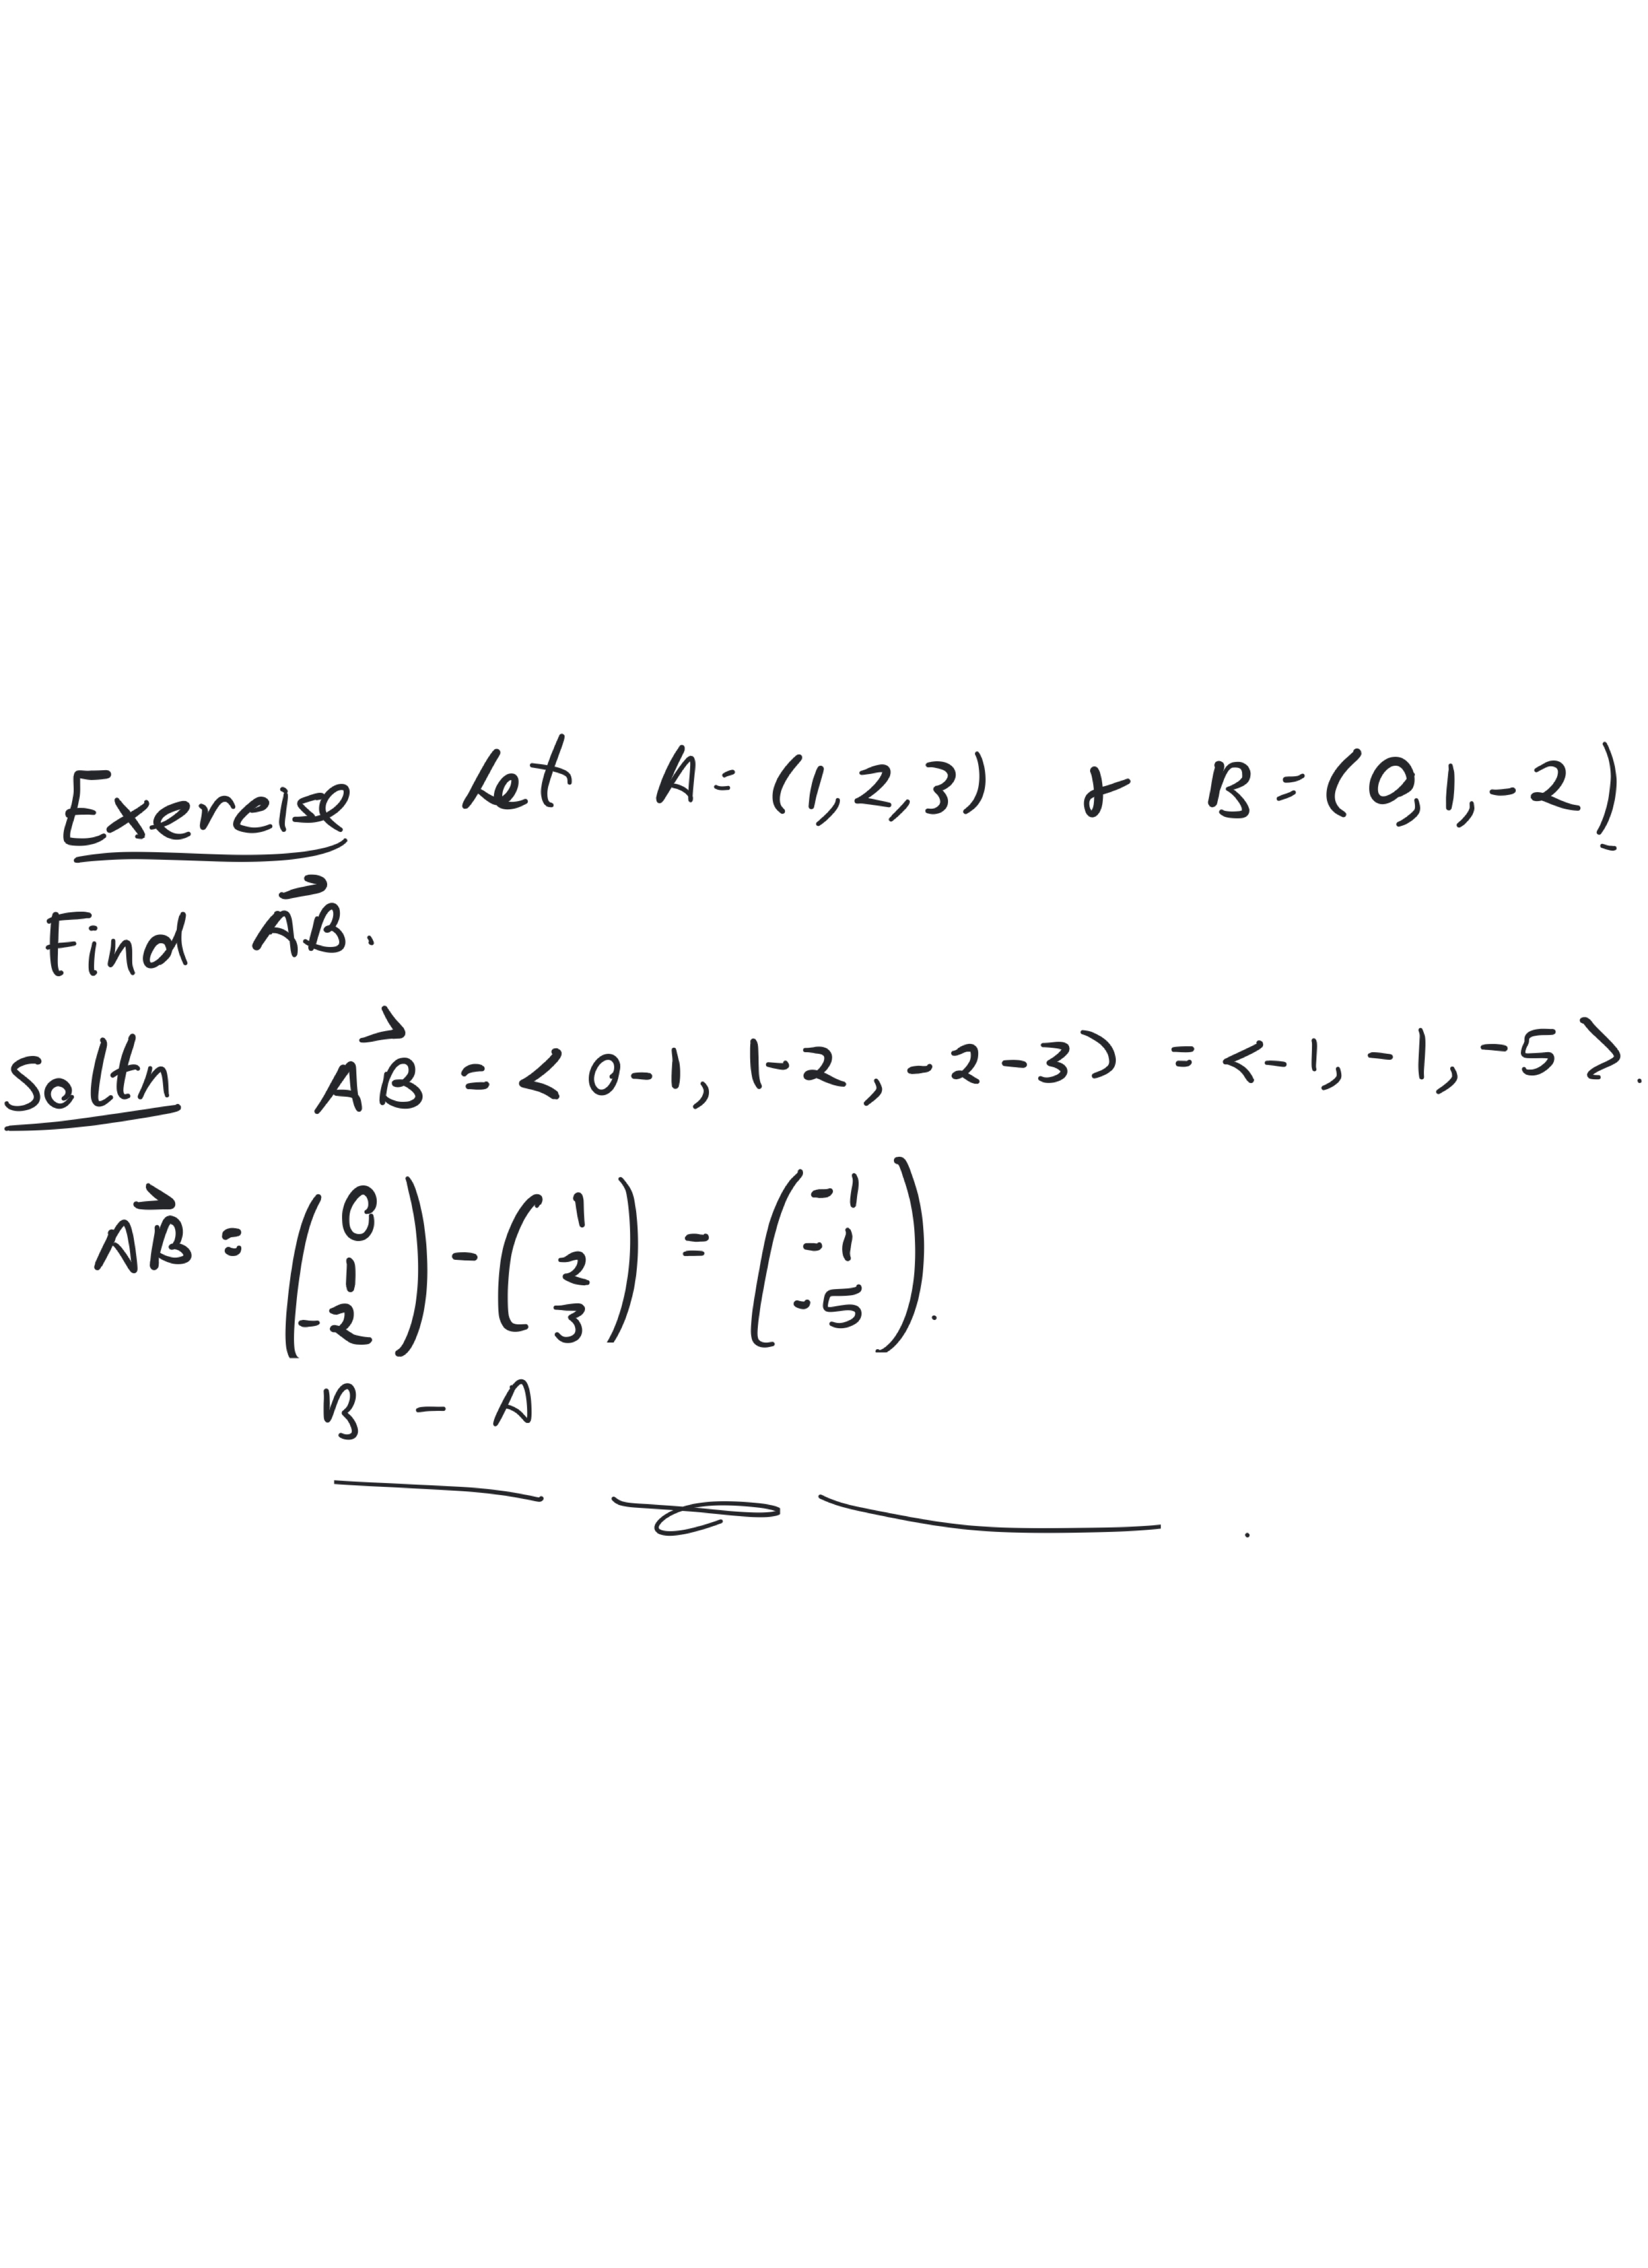 Exercise Let A = (1,2,3) & B = (0,1,-2).
Find $\vec{AB}$.
Soltn $\vec{AB}$ = <0-1, 1-2, -2-3> = <-1, -1, -5>.
$\vec{AB} = \begin{pmatrix} 0 \\ 1 \\ -2 \end{pmatrix} - \begin{pmatrix} 1 \\ 2 \\ 3 \end{pmatrix} = \begin{pmatrix} -1 \\ -1 \\ -5 \end{pmatrix}$.
B - A